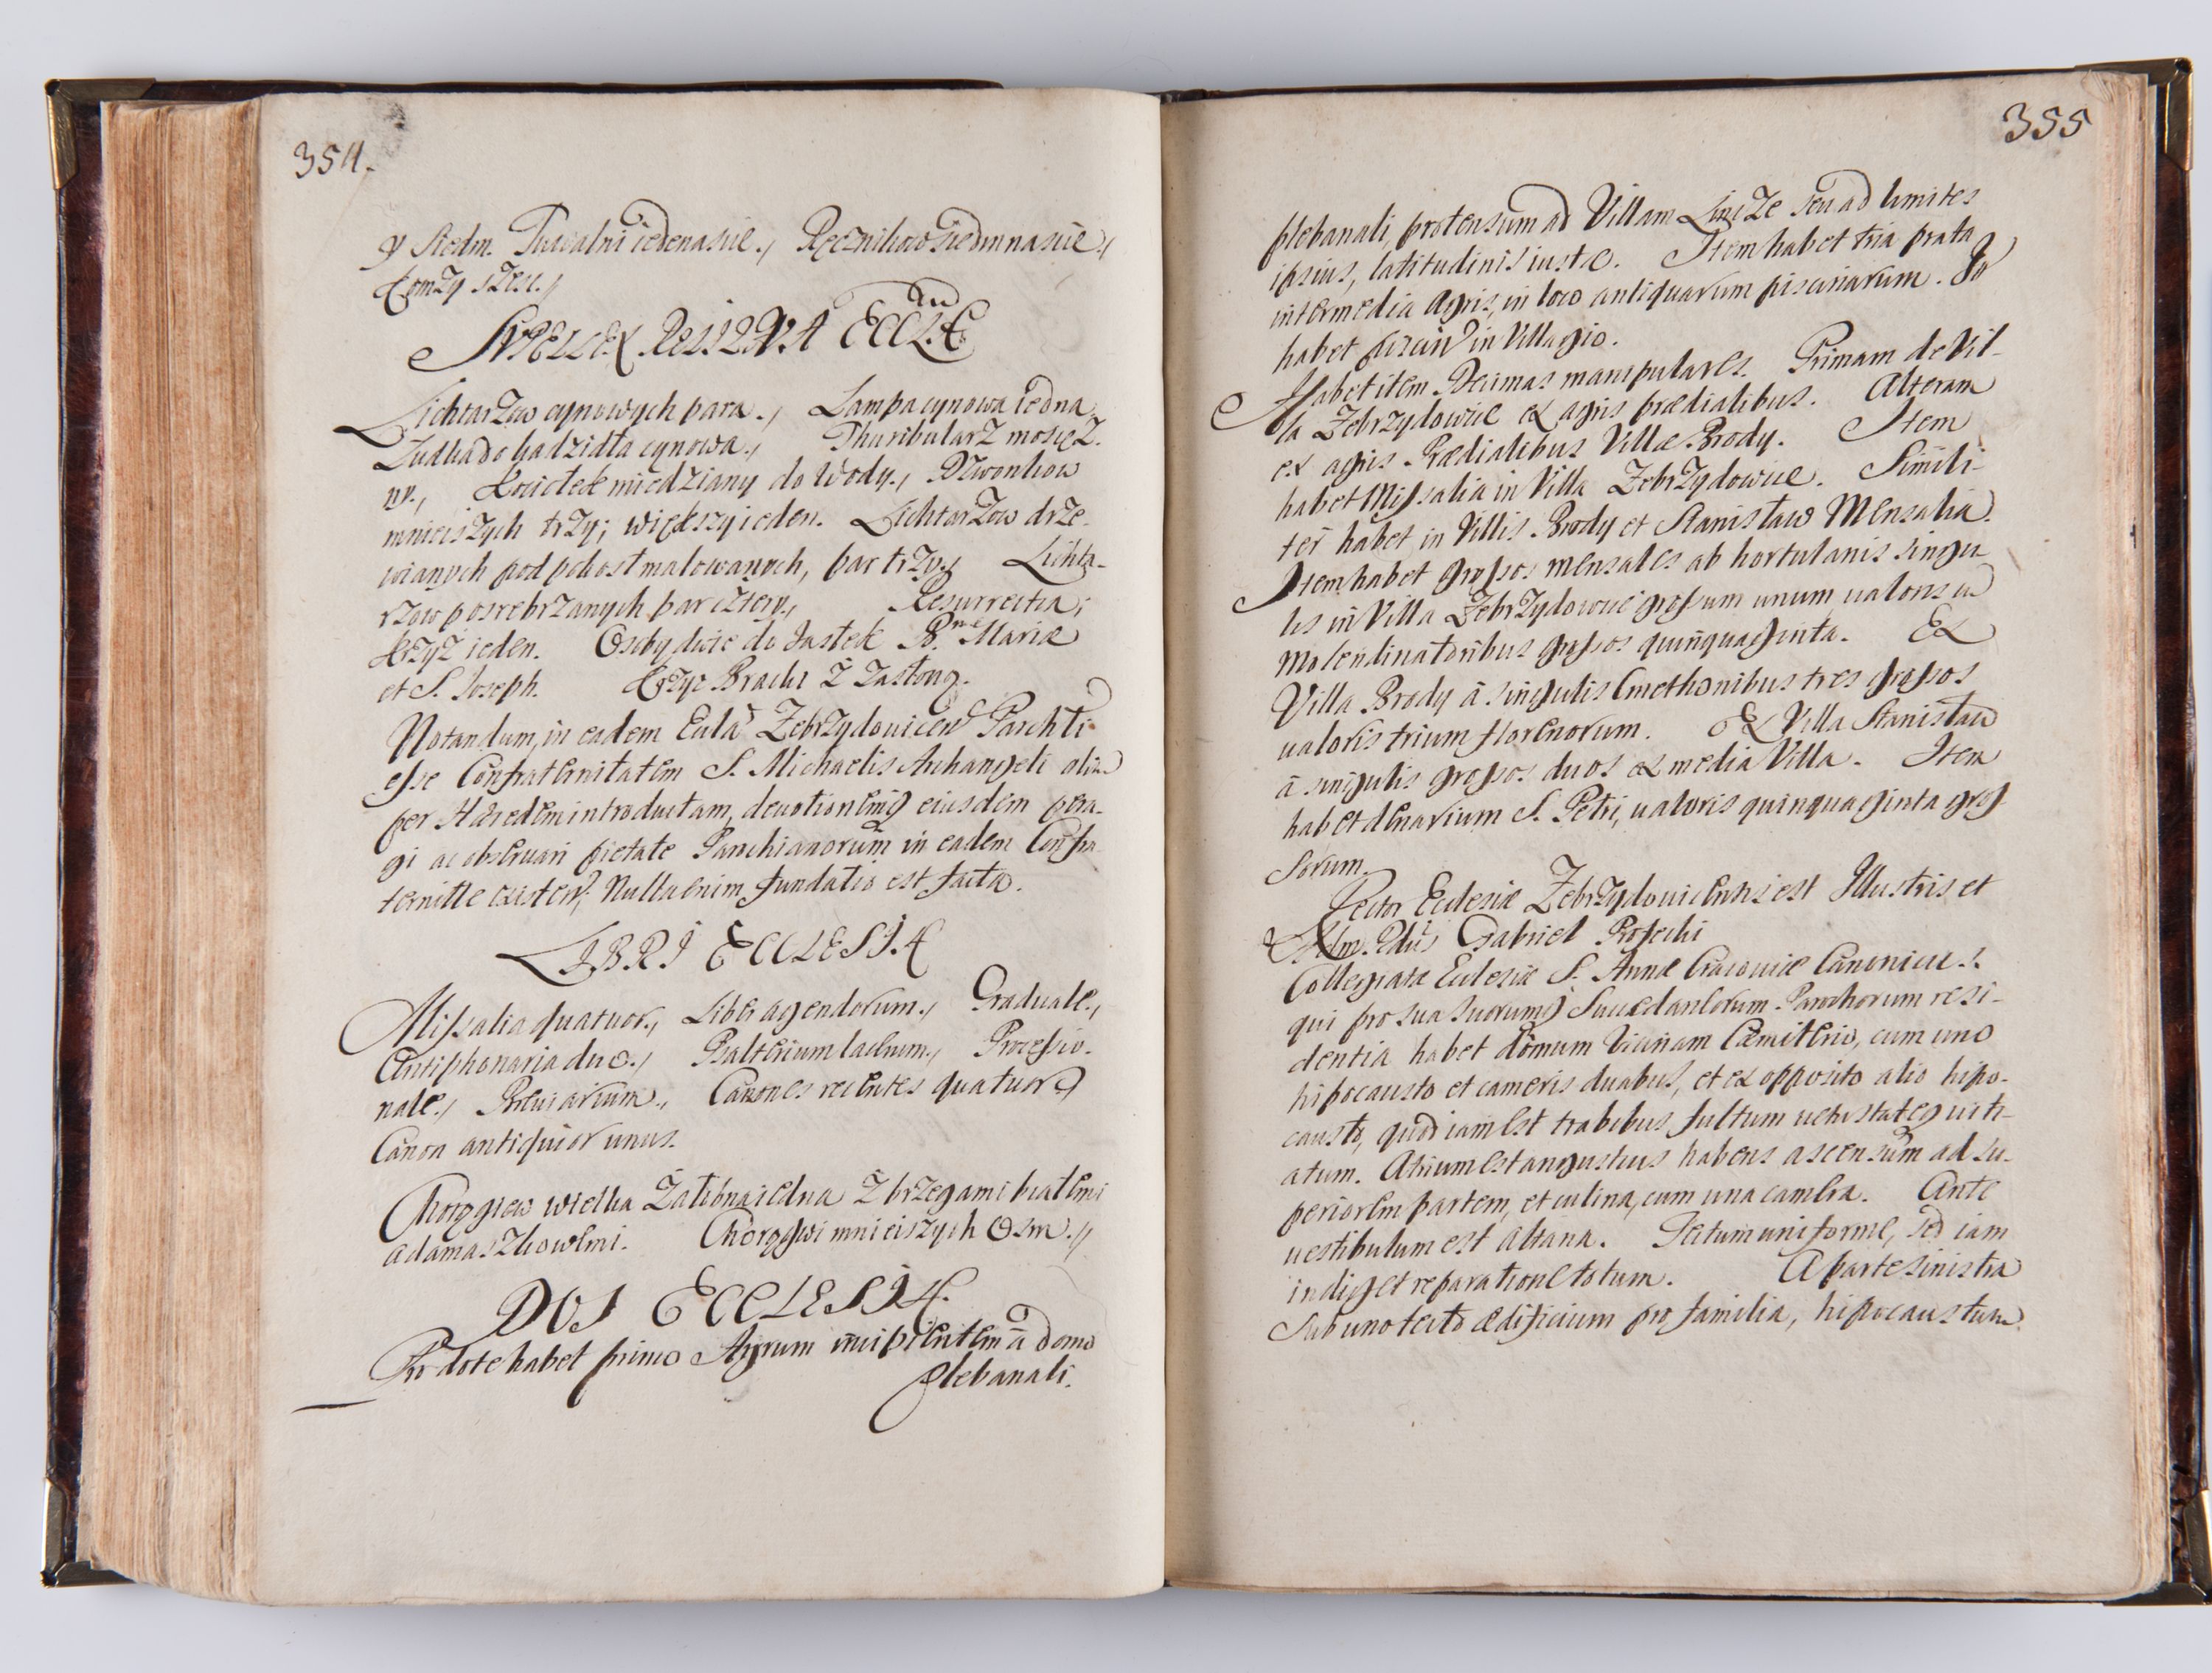 354.
y siedm. Tuwalni iedenascie., Ręcznikow siedmnascie.,
Komzy szesc.,
SVPELLEX RELIQVA ECCLÆ
Lichtarzow cynowych para., Lampa cynowa iedna,
Łudka do kadzidła cynowa., Thuribularz mosięz-
ny., Kociełek miedziany do wody., Dzwonkow
mnieiszych trzy; większy ieden. Lichtarzow drze-
wianych pod pokost malowanych, par trzy., Lichta-
rzow posrebrzanych par cztery., Resurrectia;
Krzyż ieden. Osoby dwie do Jasłek B. Mariæ
et S. Joseph. Krzyż Bracki z zasłoną.
Notandum, in eadem Eccla Zebrzydovicen Parchli
esse Confraternitatem S. Michaelis Archangeli olim
per Hæredem introductam, devotionemq eiusdem pera-
gi ac observari pietate Parochianorum in eadem Confra-
ternitte existen, Nulla enim fundatio est facta.
LIBRI ECCLESIÆ
Missalia quatuor., Liber agendorum., Graduale.,
Antiphonaria duo., Psalterium lacerum., Processio-
nale., Breviarium., Canones recentes quatuor,
Canon antiquior unus.
Chorągiew wielka żałobna iedna z brzegami białemi
adamaszkowemi. Chorągwi mnieiszych Osm.,
DOS ECCLESIÆ
Pro dote habet primo Agrum incipientem à domo
plebanali.
355
plebanali, protensum ad Villam Lincze seu ad limites
ipsius, latitudinis iustæ. Item habet tria prata
intermedia agris, in loco antiquarum piscinarum.
habet in Villagio.
Habet item Decimas manipulares. Primam de Vil-
la Zebrzydowice ex agris prædialibus. Alteram
ex agris Prædialibus Villæ Brody. Item
habet Missalia in Villa Zebrzydowice. Simili-
ter habet in Villis Brody et Stanisław Mensalia.
Item habet grossos mensales ab hortulanis singu-
lis in Villa Zebrzydowice grossum unum valoris
Molendinatoribus grossos quinquaginta. Ex
Villa Brody à singulis Cmethonibus tres grossos
valoris trium florenorum. Ex Villa Stanisław
à singulis grossos duos ex media Villa. Item
habet denarium S. Petri, valoris quinquaginta gros-
sorum.
Rector Ecclesiæ Zebrzydovicensis est Illustris et
Adm. Rdus Gabriel
Collegiatæ Ecclesiæ S. Annæ Cracoviæ Canonicus.
qui pro sua suorumq Succedaneorum Parochorum resi-
dentia habet domum vicinam Cæmiterio, cum uno
hipocausto et cameris duabus, et ex opposito alio hipo-
causto, quod iam est trabibus fultum vetustateq viti-
atum. Atrium est angustius habens ascensum ad su-
periorem partem, et culina, cum una camera. Ante
vestibulum est altana. Tectum uniforme, sed iam
indiget reparatione totum. A parte sinistra
Sub uno tecto ædificium pro familia, hipocaustum